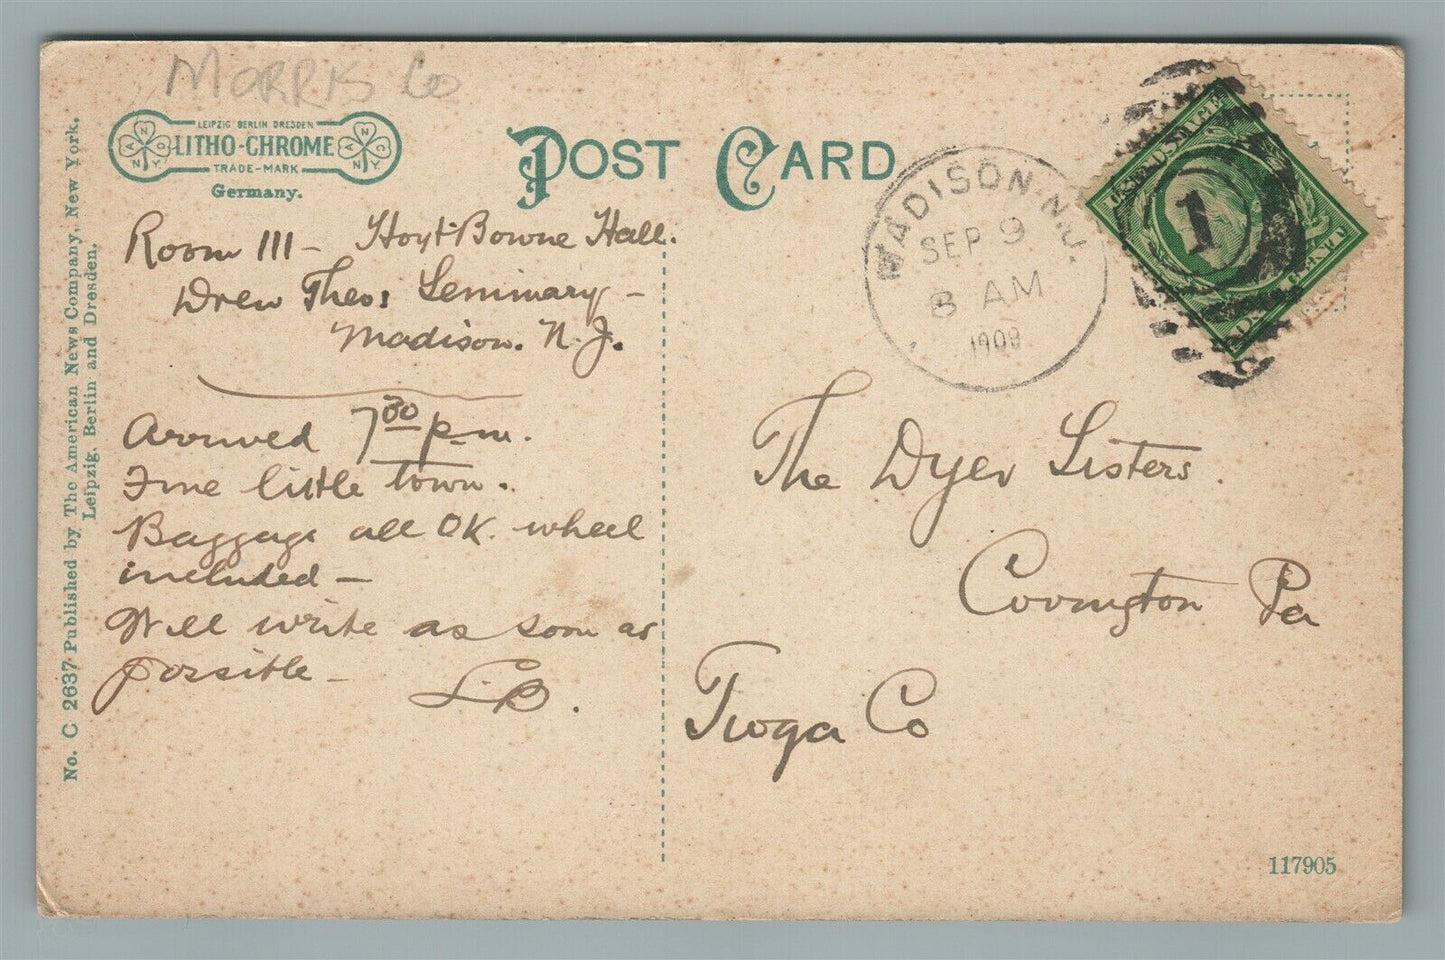 Morris Co
LEIPZIG BERLIN DRESDEN
LITHO-CHROME
TRADE-MARK
Germany.
POST CARD
MADISON N.J.
SEP 9
8 AM
1909
1
Room 111 - Hoyt-Bowne Hall.
Drew Theo: Seminary -
Madison. N. J.
Arrived 7 30 p-m.
Fine little town.
Baggage all OK. wheel
included -
Will write as soon as
possible -
L.B.
The Dyer Sisters.
Covington Pa
Tioga Co
No. C 2637 Published by The American News Company, New York.
Leipzig, Berlin and Dresden.
117905